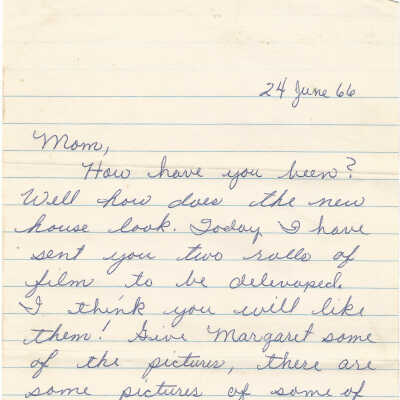 24 June 66
Mom,
How have you been?
Well how does the new
house look. Today I have
sent you two rolls of
film to be delevoped.
I think you will like
them! Give Margaret some
of the pictures, there are
some pictures of some of